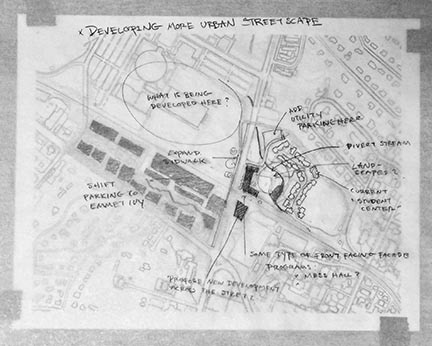 x DEVELOPING MORE URBAN STREETSCAPE
WHAT IS BEING
DEVELOPED HERE?
ADD
UTILITY
PARKING HERE
DIVERT STREAM
EXPAND
SIDWALK
LAND-
SCAPES?
SHIFT
PARKING TO
EMMET IVY
CURRENT
"STUDENT
CENTER"
SOME TYPE OF FRONT FACING FACADE
PROGRAMS
MESS HALL?
PROPOSE NEW DEVELOPMENT
ACROSS THE STREET